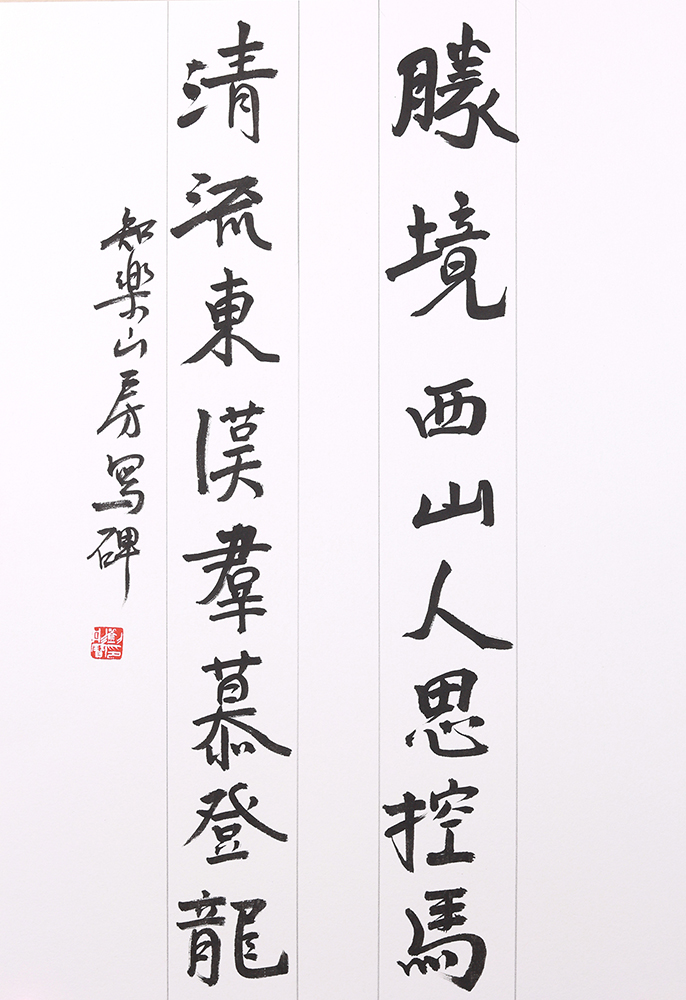 勝境西山人思控馬
清流東漢羣慕登龍
知樂山房写碑